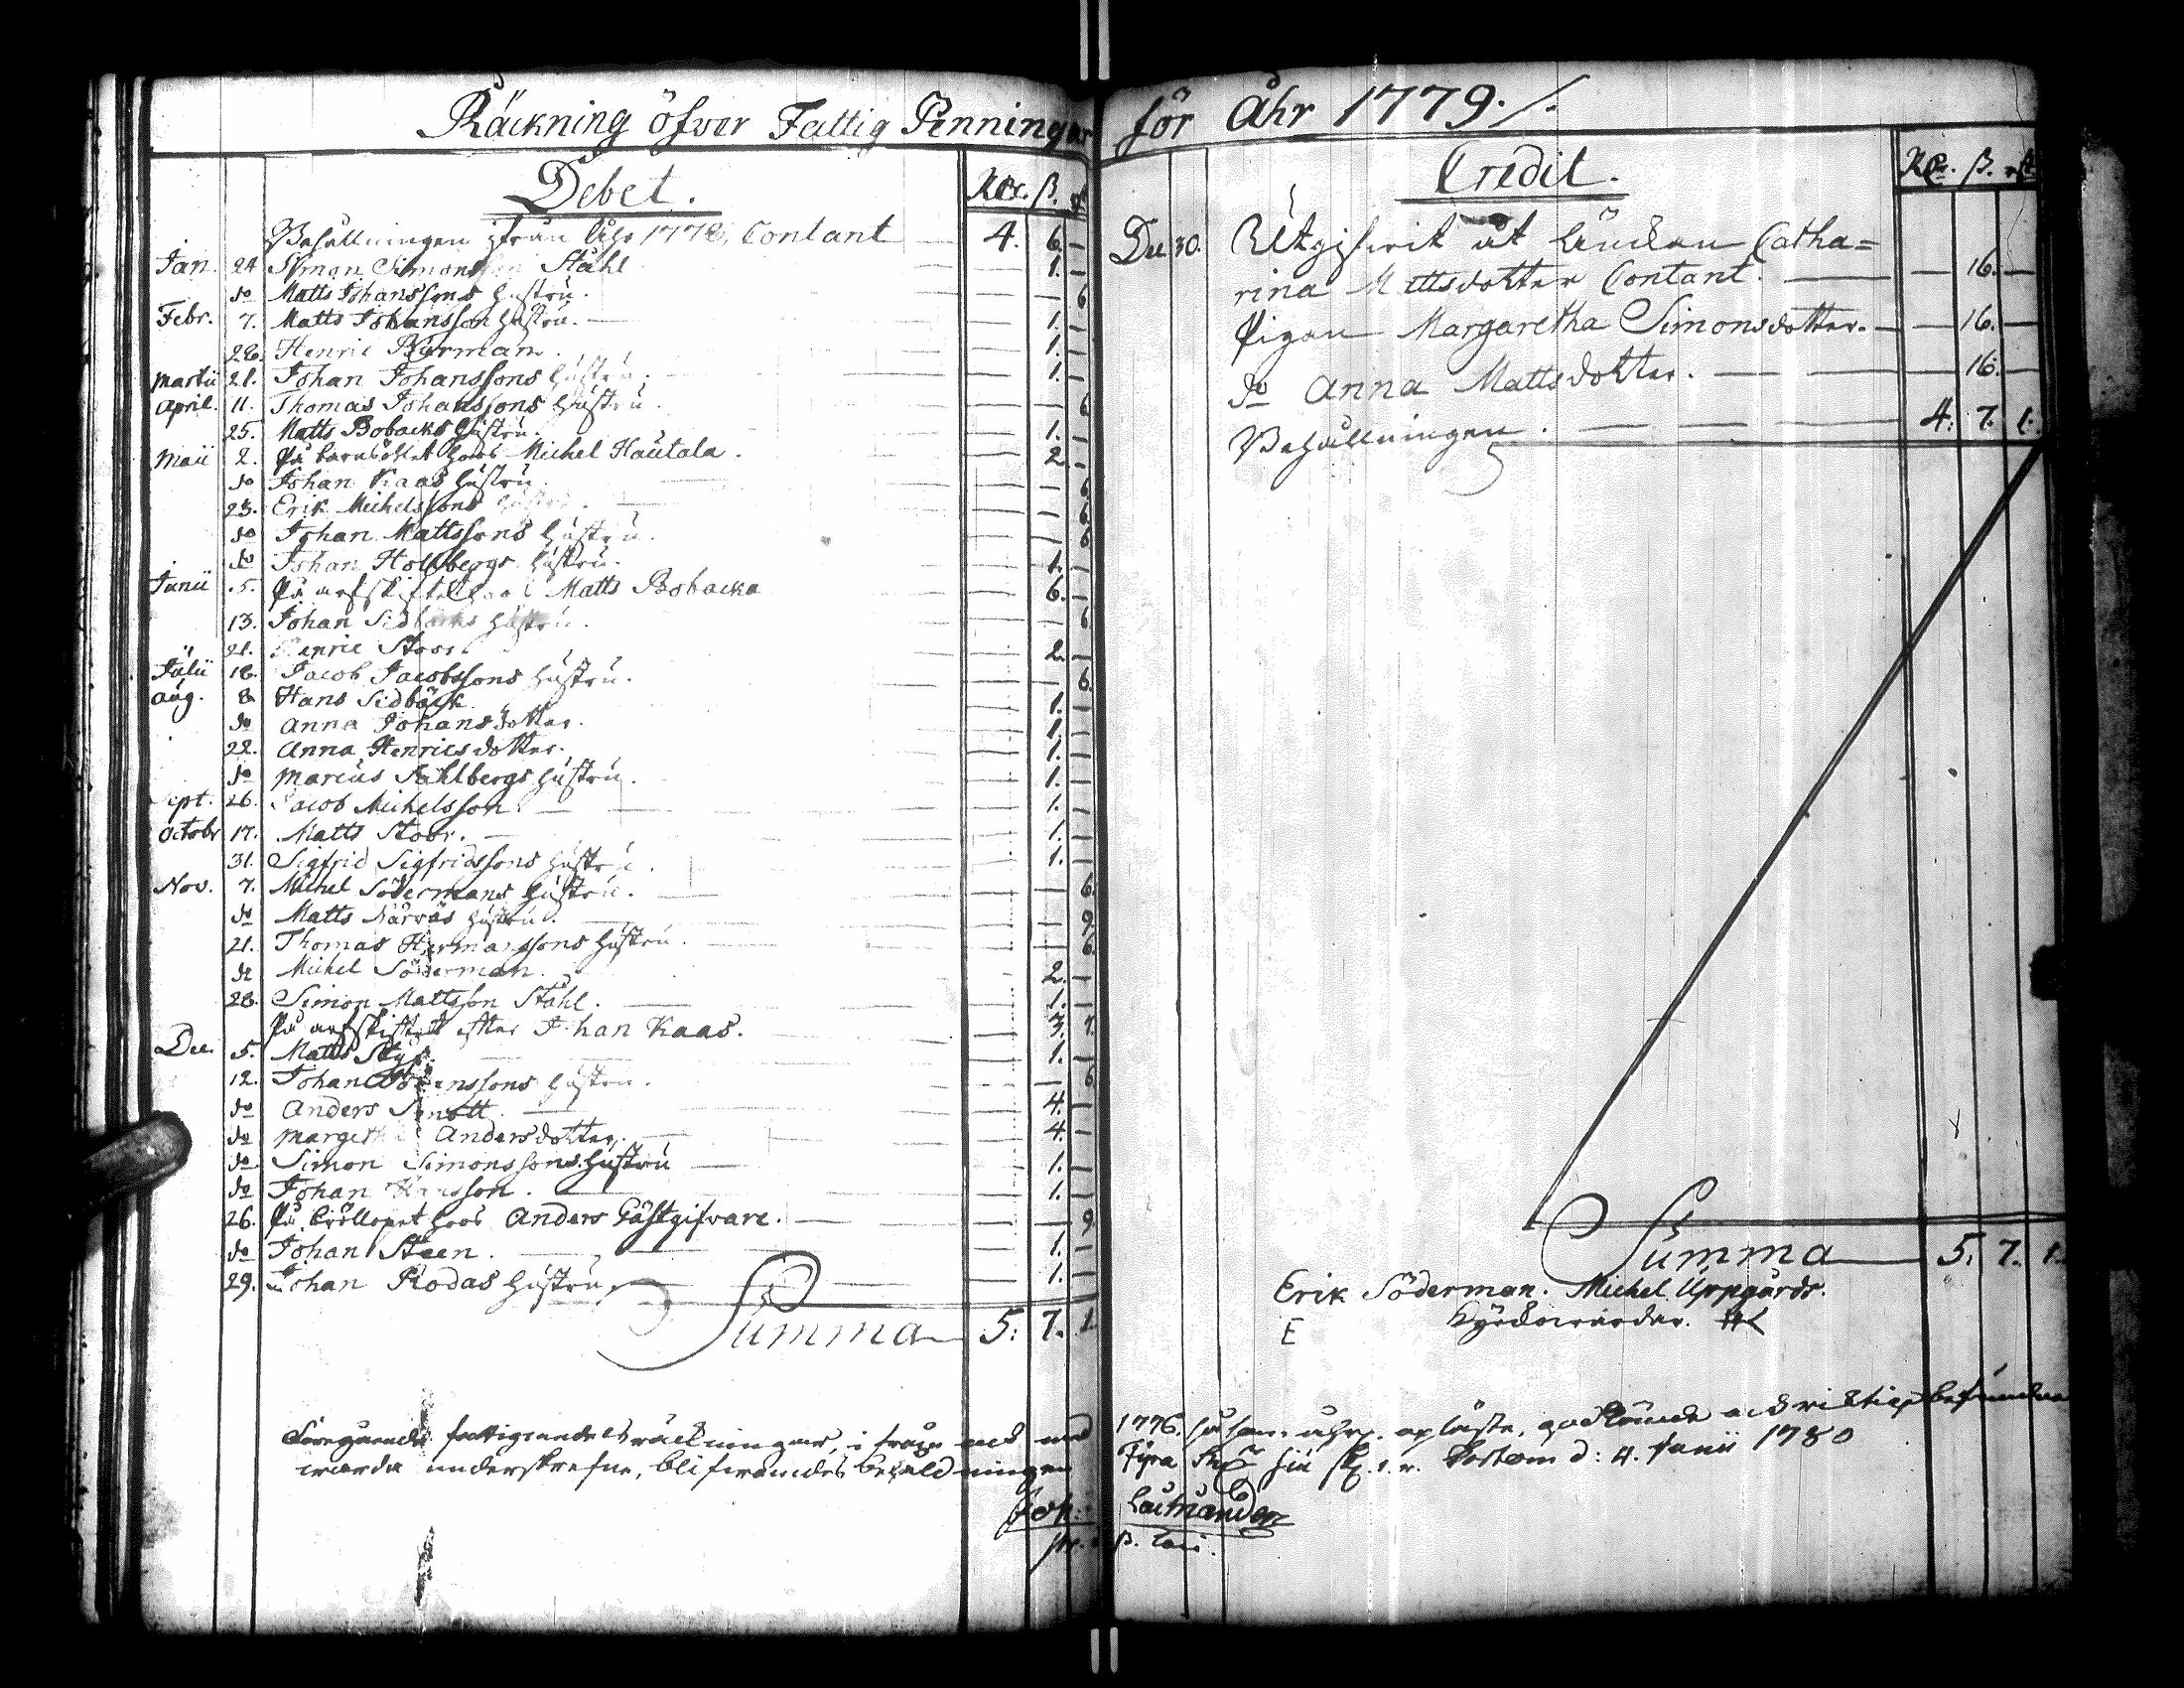 Räckning öfver Fattig Penningar
Debet. Rdr. ß. rst
Behållningen ifrån Åhr 1778, Contant 4. 6. –
Jan. 24 Simon Simonsson Ståhl 1. –
do Matts Johanssons hustru. – 6
Febr. 7. Matts Johansson hustru. 1. –
28. Henric Byrman. 1. –
Martii 21. Johan Johanssons hustru. 1. –
April. 11. Thomas Johanssons hustru. – 6
25. Matts Bobacks hustru. 1. –
Maii 2. På barnsöhlet hoos Michel Hautala. 2. –
do Johan Kaas hustru. – 6
23. Erik Michelssons hustru. – 6
do Johan Mattssons hustru. – 6
do Johan Hollbergs hustru. 1. –
Junii 5. På arfskiftet hoos Matts Bobacka 6. –
13. Johan Sidbäcks hustru. – 6
21. Henric Stoor 2. –
Julii 18. Jacob Jacobssons hustru. – 6.
Aug. 8. Hans Sidbäck 1. –
do Anna Johansdotter. 1. –
22. Anna Henricsdotter. 1. –
do Marcus Sahlbergs hustru. 1. –
Sept. 26. Jacob Michelsson. 1. –
Octobr 17. Matts Stoor. 1. –
31. Sigfrid Sigfridssons hustru. 1. –
Nov. 7. Michel Södermans hustru. – 6.
do Matts Närväs hustru. – 9.
21. Thomas Hermanssons hustru. – 6.
do Michel Söderman. 2. –
28. Simon Mattsson Ståhl. 1. –
På arfskiftet efter Johan Kaas. 3. 7.
Dec. 5. Matts 1. –
12. Johan hustru. – 6
do Anders 4. –
do Margetha Andersdotter. 4. –
do Simon Simonssons hustru 1. –
do Johan 1. –
26. På bröllopet hoos Anders Gästgifvare. – 9
do Johan Steen. 1. –
29. Johan Rodas hustru. 1. –
Summa 5. 7. 1.
Föregående fattigandelsräckningar, ifrån och med
warda underskrefne, blifwandes behåldningen
Joh:
för Åhr 1779./.
Credit. Rdr. ß. rst
Dec 30. Utgifwit åt Änckan Catha=
rina Mattsdotter Contant. – 16. –
Pigan Margaretha Simonsdotter. – 16. –
do Anna Mattsdotter. – 16. –
Behållningen. 4. 7. 1.
Summa 5. 7. 1.
Erik Söderman. Michel Uppgårds.
E Kyrckowärdar.
1776, uplästa, godkände och richtigt befundna
Fyra siu d: 4. Junii 1780